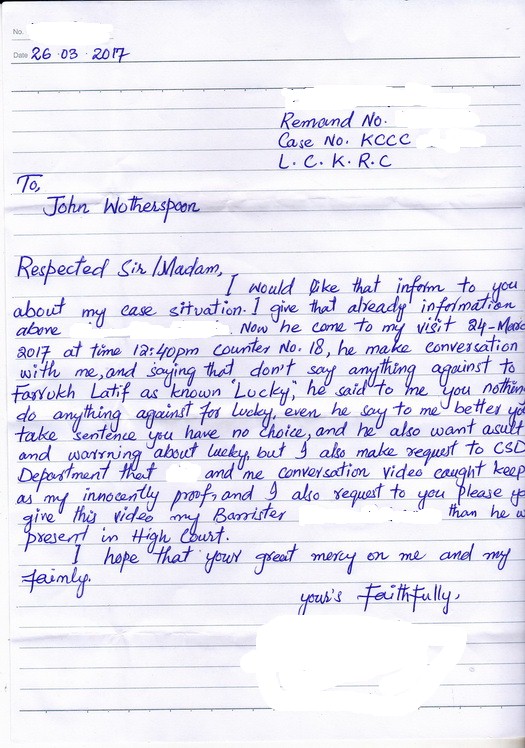 No.
Date 26 03 2017
Remand No.
Case No. KCCC
L. C. K. R. C
To,
John Wotherspoon
Respected Sir/Madam,
I would like that inform to you
about my case situation. I give that already information
above Now he come to my visit 24-Marc
2017 at time 12:40pm counter No. 18, he make conversation
with me, and saying that don't say anything against to
Farrukh Latif as known "Lucky", he said to me you nothing
do anything against for Lucky, even he say to me better you
take sentence you have no choice, and he also want asult
and warrning about lucky, but I also make request to CSD
Department that and me conversation video caught keep
as my innocently proof, and I also request to you please
give this video my Barrister than he
present in High Court.
I hope that your great mercy on me and my
faimly.
your's Faithfully,